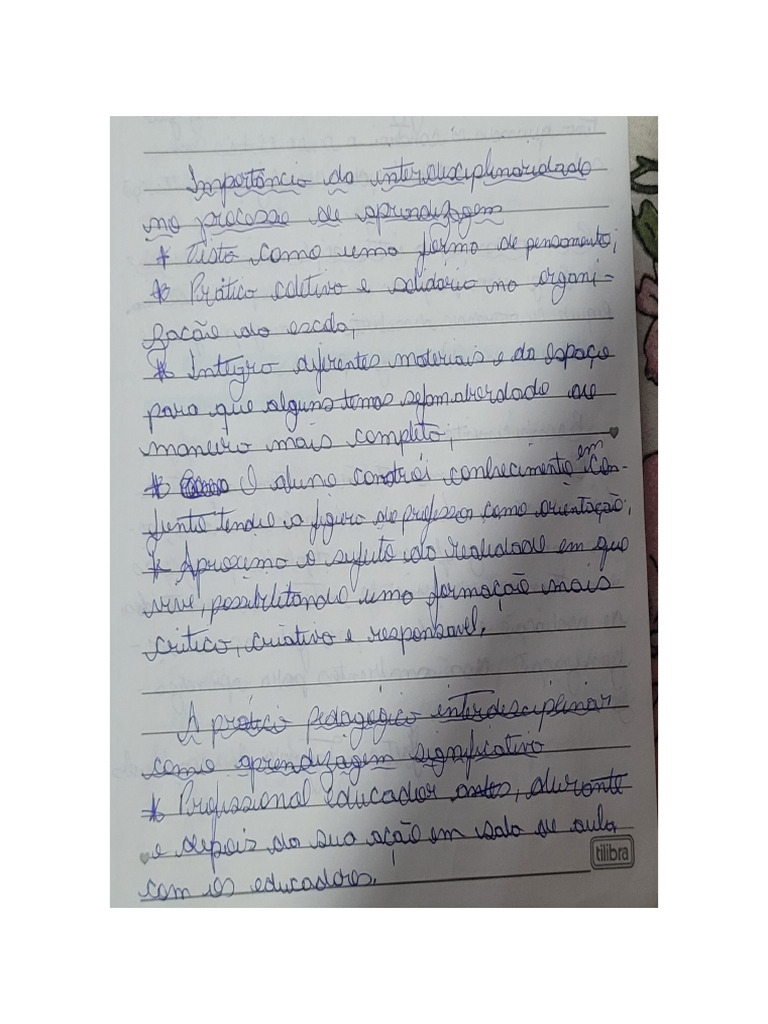 Importância da interdisciplinaridade
no processo de aprendizagem
* Vista como uma forma de pensamento;
* Prática coletiva e solidária na organi-
zação da escola;
* Integra diferentes materiais e do espaço
para que alguns temas sejam abordado de
maneira mais completa;
* O aluno constrói conhecimento em con-
junto tendo a figura do professor como orientação;
* Aproxima o sujeito da realidade em que
vive, possibilitando uma formação mais
critica, criativa e responsável.
A prática pedagógica interdisciplinar
como aprendizagem significativa
* Profissional educador antes, durante
e depois da sua ação em sala de aula
com os educadores.
tilibra